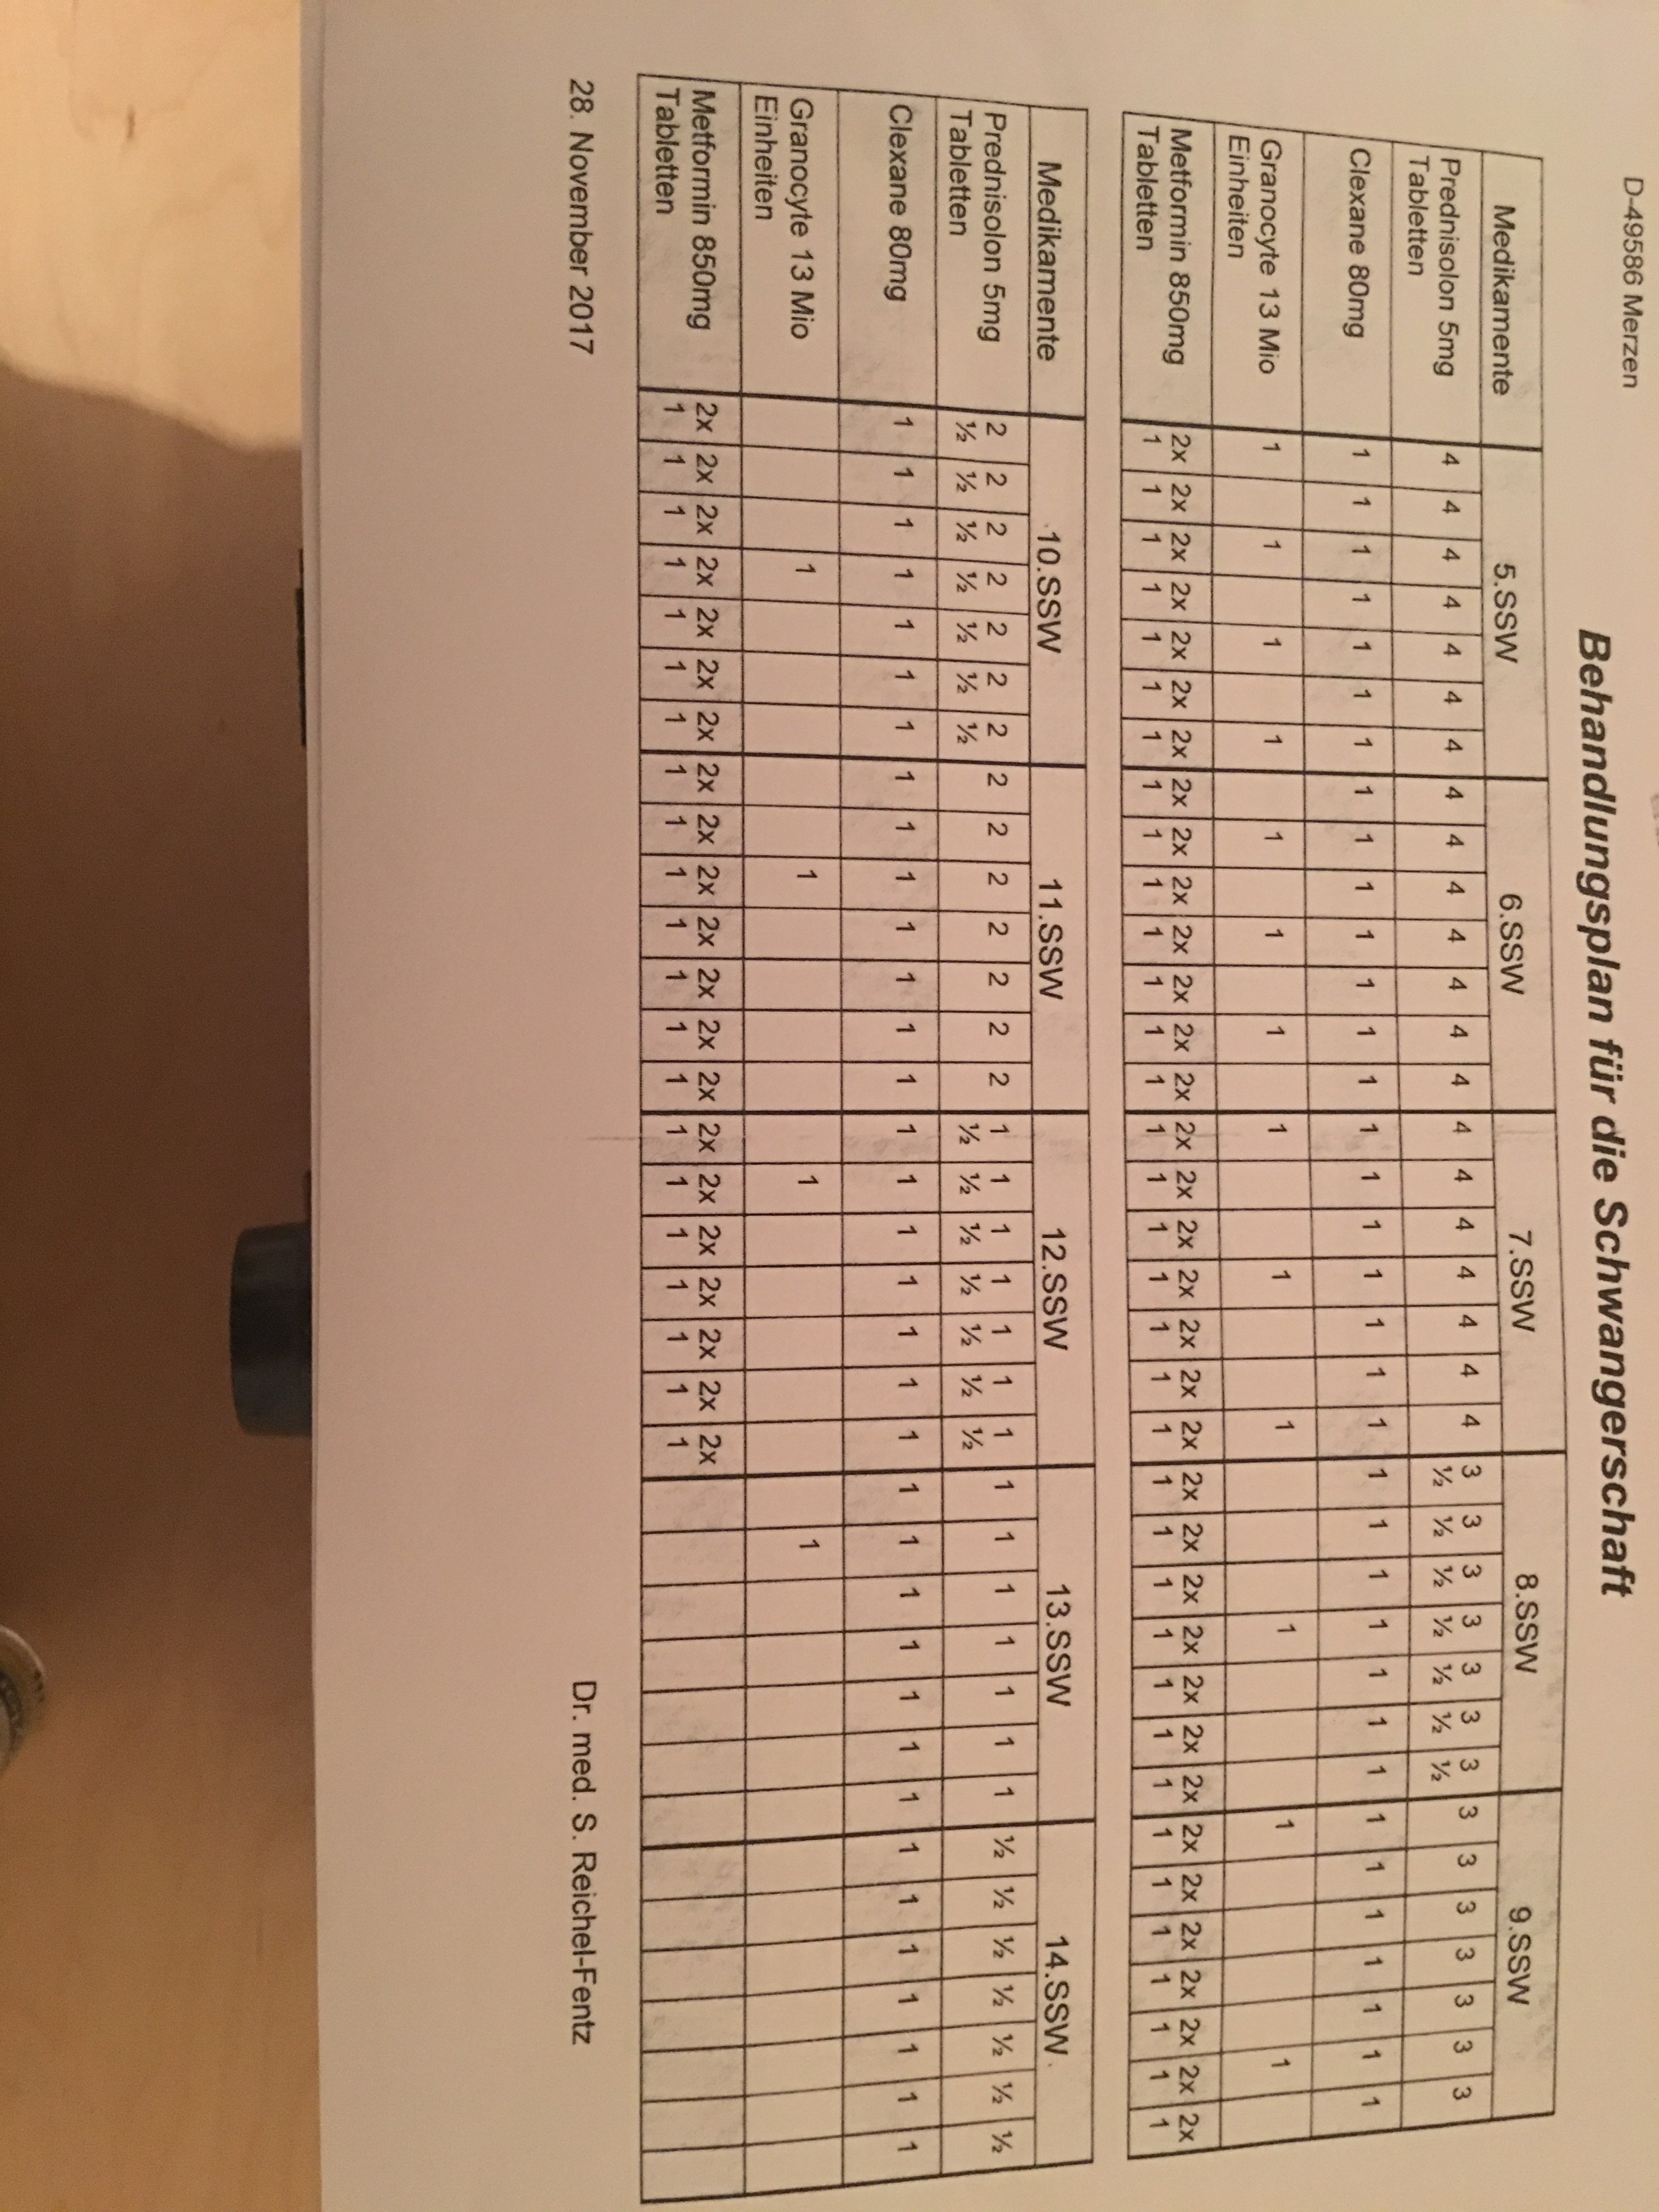 D-49586 Merzen
Behandlungsplan für die Schwangerschaft
Medikamente 5.SSW 6.SSW 7.SSW 8.SSW 9.SSW
Prednisolon 5mg 4 4 4 4 4 4 4 4 4 4 4 4 4 4 4 4 4 4 4 4 4 3 3 3 3 3 3 3 3 3 3 3 3 3 3
Tabletten ½ ½ ½ ½ ½ ½ ½
Clexane 80mg 1 1 1 1 1 1 1 1 1 1 1 1 1 1 1 1 1 1 1 1 1 1 1 1 1 1 1 1 1 1 1 1 1 1 1
Granocyte 13 Mio 1 1 1 1 1 1 1 1 1 1 1 1 1
Einheiten
Metformin 850mg 2x 2x 2x 2x 2x 2x 2x 2x 2x 2x 2x 2x 2x 2x 2x 2x 2x 2x 2x 2x 2x 2x 2x 2x 2x 2x 2x 2x 2x 2x 2x 2x 2x 2x 2x
Tabletten 1 1 1 1 1 1 1 1 1 1 1 1 1 1 1 1 1 1 1 1 1 1 1 1 1 1 1 1 1 1 1 1 1 1 1
Medikamente 10.SSW 11.SSW 12.SSW 13.SSW 14.SSW
Prednisolon 5mg 2 2 2 2 2 2 2 2 2 2 2 2 2 2 1 1 1 1 1 1 1 1 1 1 1 1 1 1 ½ ½ ½ ½ ½ ½ ½
Tabletten ½ ½ ½ ½ ½ ½ ½ ½ ½ ½ ½ ½ ½ ½
Clexane 80mg 1 1 1 1 1 1 1 1 1 1 1 1 1 1 1 1 1 1 1 1 1 1 1 1 1 1 1 1 1 1 1 1 1 1 1
Granocyte 13 Mio 1 1 1 1
Einheiten
Metformin 850mg 2x 2x 2x 2x 2x 2x 2x 2x 2x 2x 2x 2x 2x 2x 2x 2x 2x 2x 2x 2x 2x
Tabletten 1 1 1 1 1 1 1 1 1 1 1 1 1 1 1 1 1 1 1 1 1
28. November 2017 Dr. med. S. Reichel-Fentz